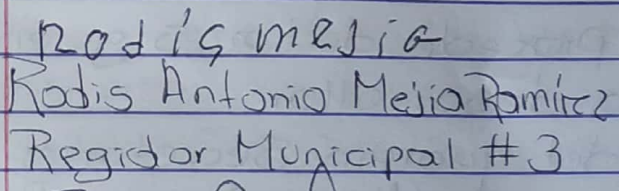 Rodis mejia
Rodis Antonio Mejia Ramírez
Regidor Municipal # 3